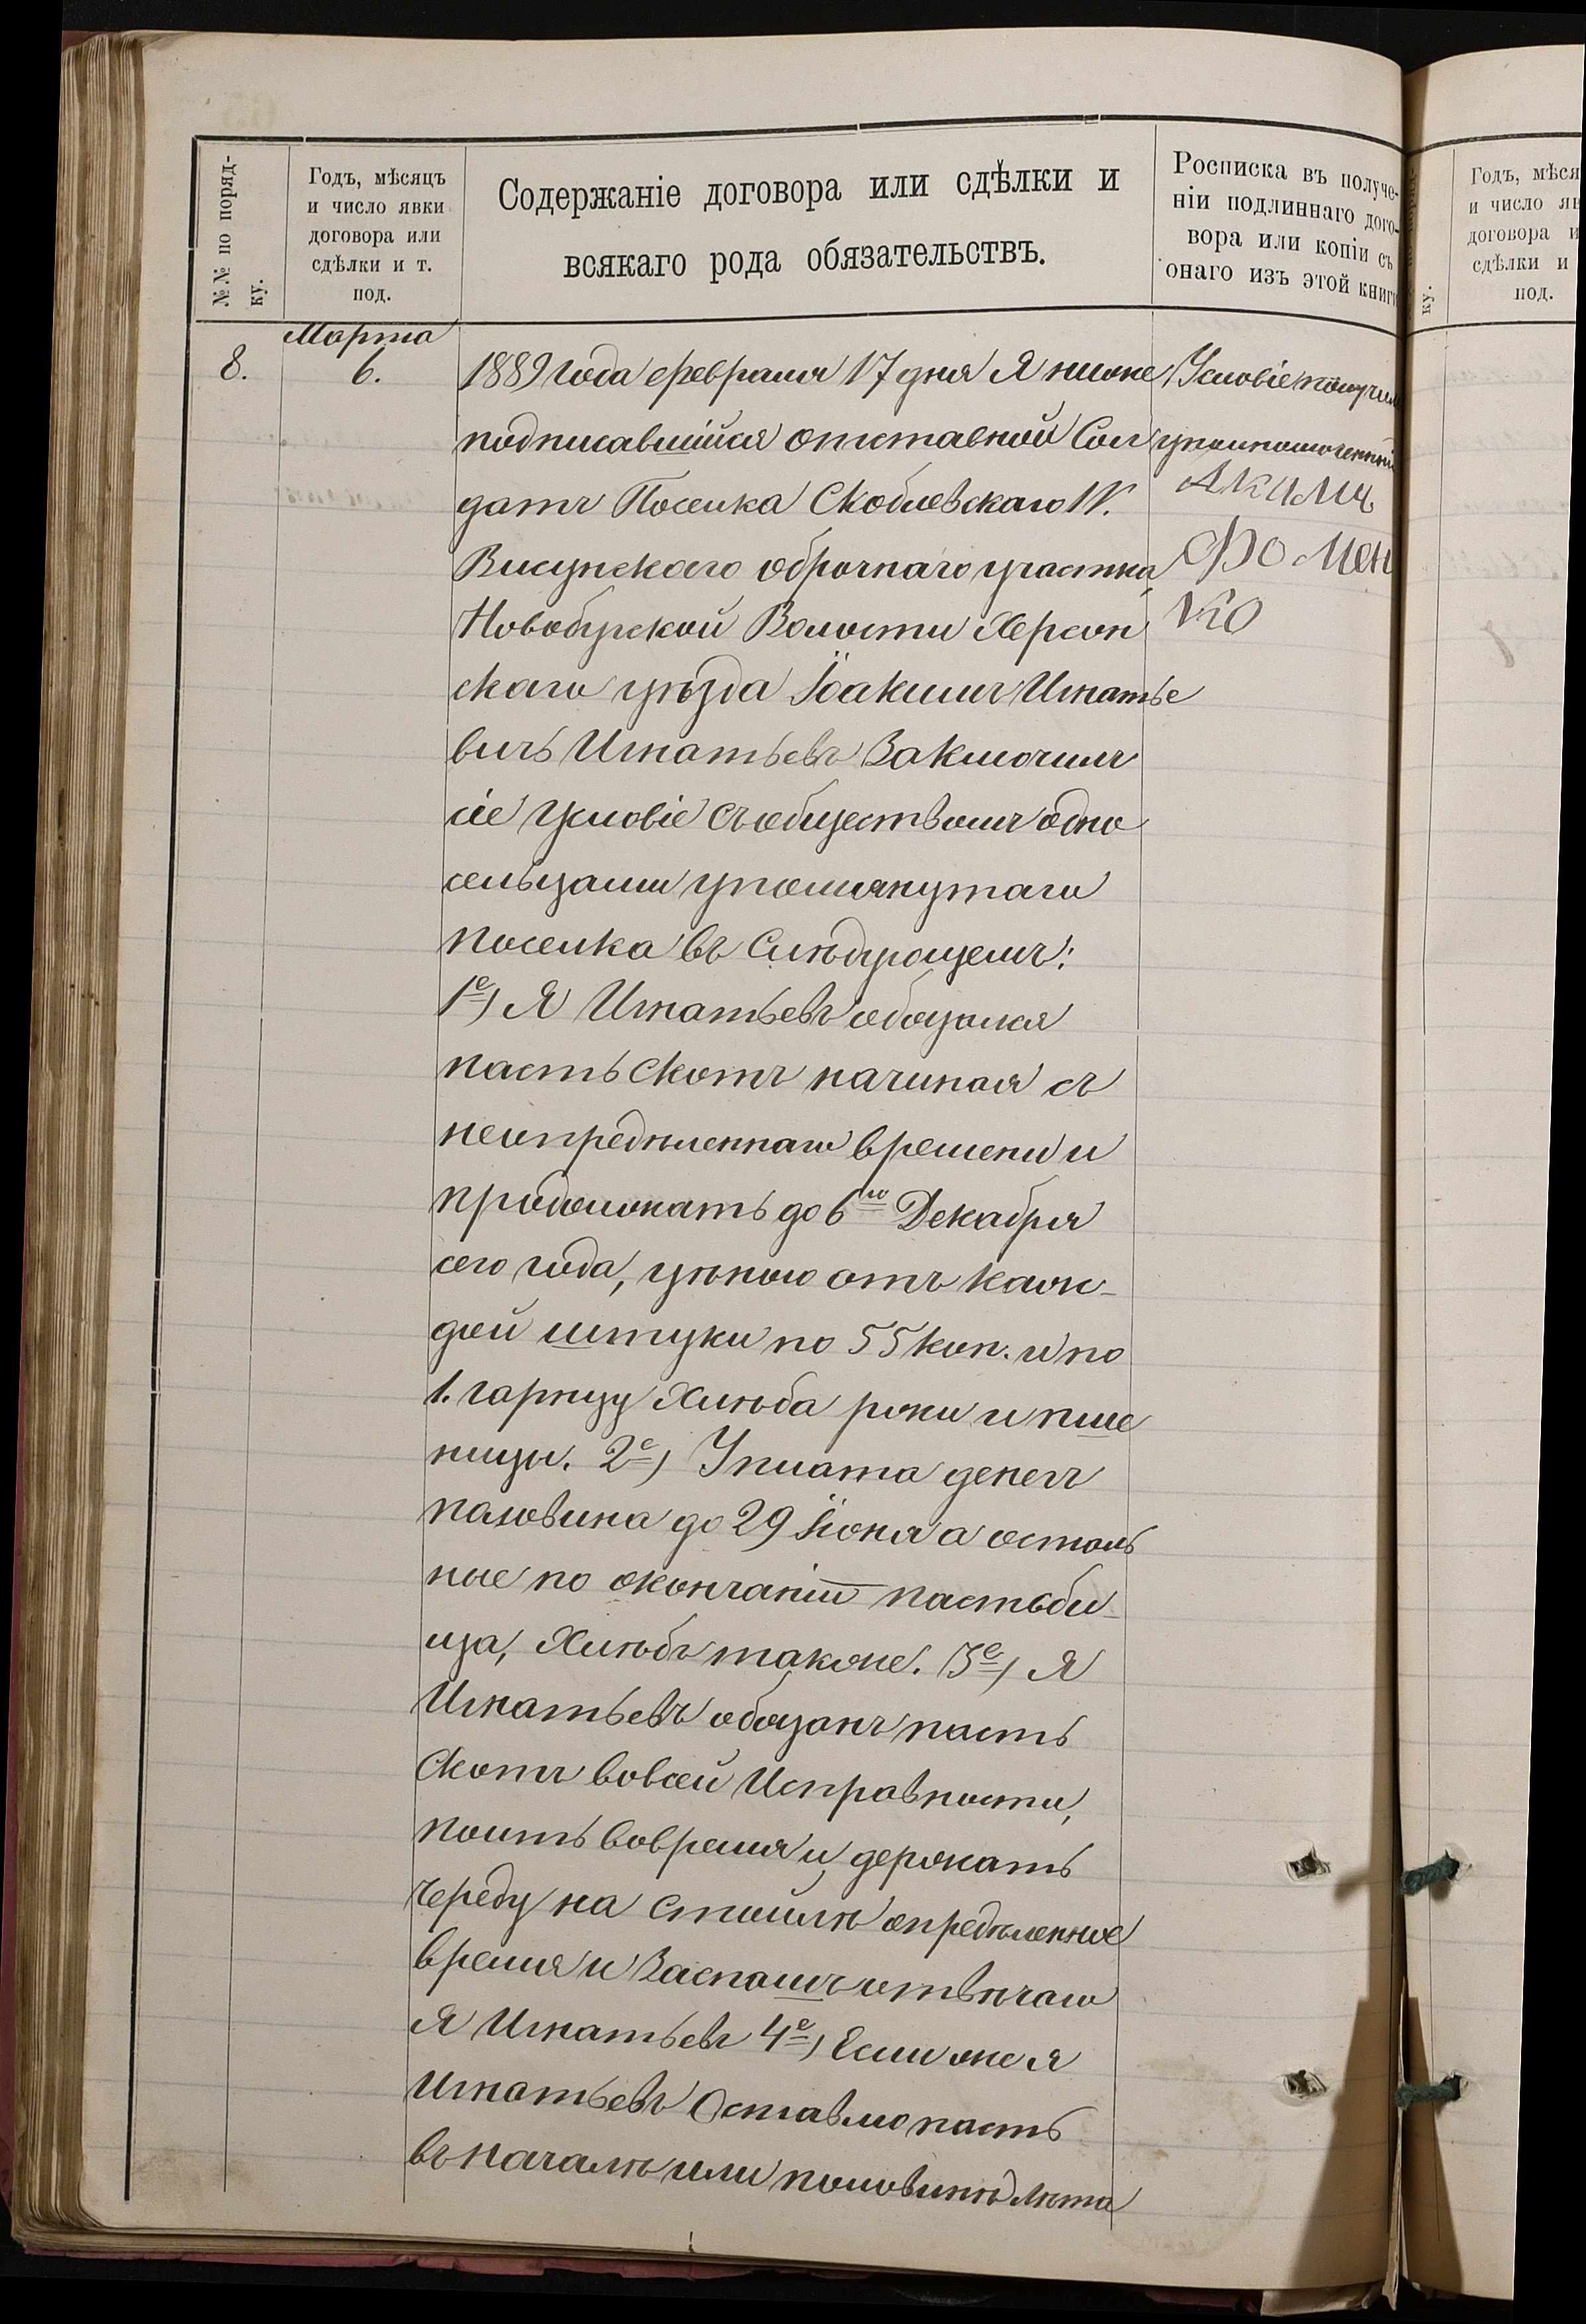 №№ по поряд-
ку.
Годъ, мѣсяцъ
и число явки
договора или
сдѣлки и т.
под.
Содержаніе договора или сдѣлки и
всякаго рода обязательствъ.
Росписка въ получе-
ніи подлиннаго дого-
вора или копіи съ
онаго изъ этой книги
8.
Марта
6.
1889 года февраля 17 дня Я ниже
подписавшійся отставной Сол
датъ Поселка Скоблевскаго IV.
Висунскаго оброчнаго участка,
Новобугской Волости Херсон
скаго уѣзда Іоакимъ Игнатье
вичъ Игнатьевъ Заключилъ
сіе Условіе съ обществомъ одно
сельцами упомянутаго
поселка въ Слѣдующемъ:
1е) Я Игнатьевъ обязался
пасть Скотъ начиная съ
неопредѣленнаго времени и
продолжать до 6го Декабря
сего года, цѣною отъ каж-
дой штуки по 55 коп. и по
1. гарнцу Хлѣба ржи и пше
ницы. 2е) Уплата денегъ
половина до 29 Іюня а осталь
ные по окончаніи пастьби
ща, Хлѣбъ также. 3е) Я
Игнатьевъ обязанъ пасть
Скотъ вовсей Исправности,
поить вовремя и держать
череду на стойлѣ определенное
время и Заспашъ отвѣчаю
Я Игнатьевъ 4е) Если же я
Игнатьевъ Оставлю пасть
въ началѣ или половинѣ лѣта
Условіе получилъ
уполномоченный
Акимъ
Фомен
ко
ку.
Годъ, мѣся
и число яв
договора и
сдѣлки и
под.